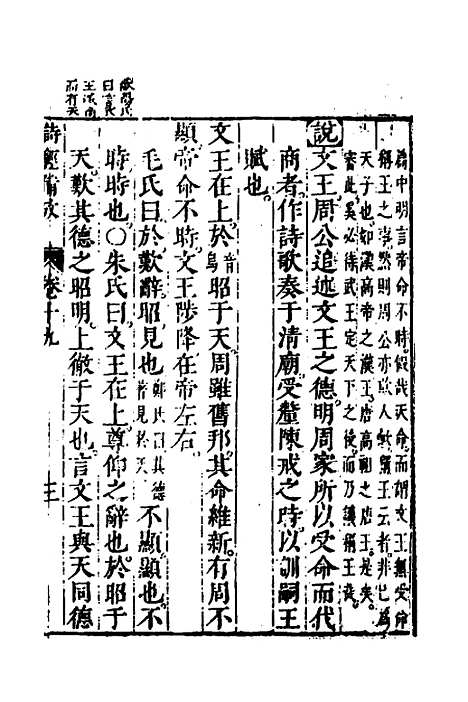 篇中明言帝命不時假哉天命而謂文王無受命
稱王之事然則周公亦
天子也如漢高帝之漢王唐高祖之唐王是矣
審此奚必待武王定天下之後而乃議稱王哉
說文王周公追述文王之德明周家所以受命而代
商者作詩歌奏于清廟受釐陳戒之時以訓嗣王
賦也
文王在上於音烏昭于天周雖舊邦其命維新有周不
顯帝命不時文王陟降在帝左右
毛氏曰於歎辭昭見也鄭氏曰其德著見於天不顯顯也不
時時也○朱氏曰文王在上尊仰之辭也於昭于
天歎其德之昭明上徹于天也言文王與天同德
詩經 卷十九 三